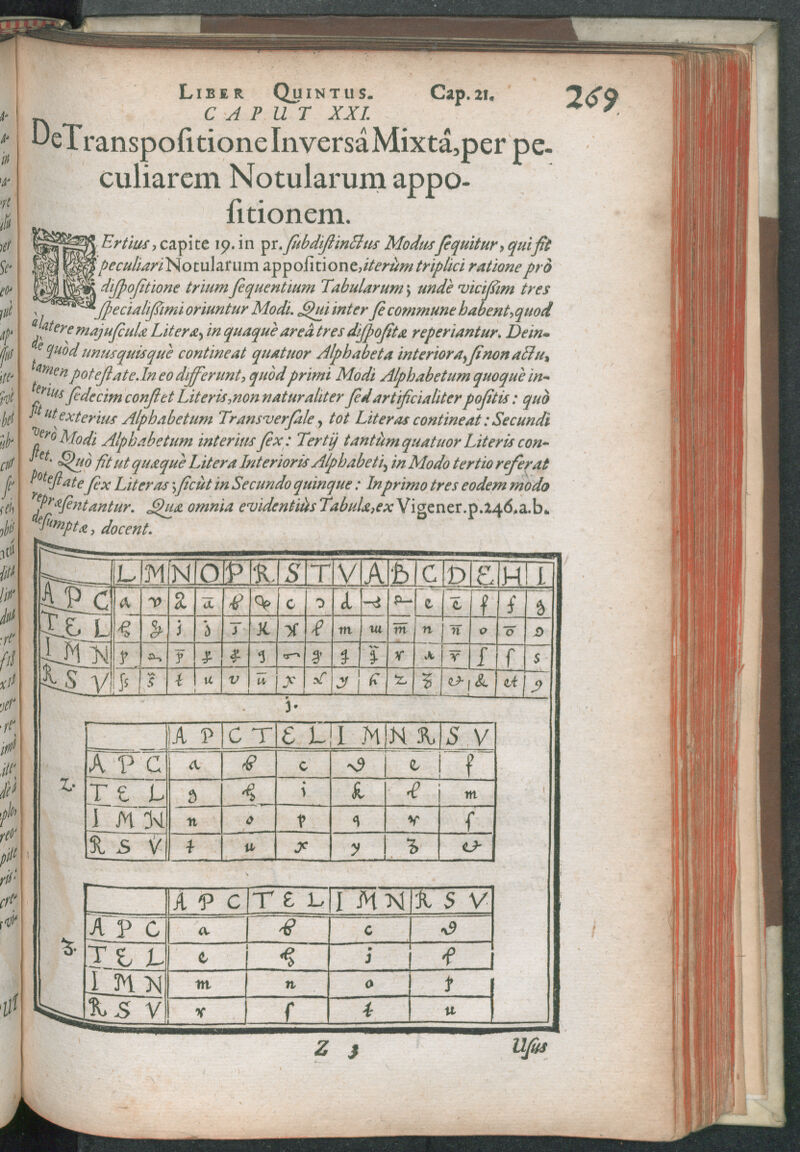 LIBER QUINTUS. Cap. 21. 269
CAPUT XXI.
De Transpositione Inversâ Mixtâ, per pe-
culiarem Notularum appo-
sitionem.
TErtius, capite 19. in pr. subdistinctus Modus sequitur, qui fit
peculiari Notularum appositione, iterùm triplici ratione prò
dispositione trium sequentium Tabularum; undè vicißim tres
specialißimi oriuntur Modi. Qui inter se commune habent, quod
à latere majusculæ Literæ, in quaquè areâ tres dispositæ reperiantur. Dein-
dè quòd unusquisquè contineat quatuor Alphabeta interiora, si non actu,
tamen potestate. In eo differunt, quòd primi Modi Alphabetum quoquè in-
terius sedecim constet Literis, non naturaliter sed artificialiter positis: quò
fit ut exterius Alphabetum Transversale, tot Literas contineat: Secundi
verò Modi Alphabetum interius sex: Tertij tantùm quatuor Literis con-
stet. Quò fit ut quæquè Litera Interioris Alphabeti, in Modo tertio referat
potestate sex Literas; sicùt in Secundo quinque: In primo tres eodem modo
repræsentantur. Quæ omnia evidentiùs Tabulæ, ex Vigener. p. 246. a. b.
desumptæ, docent.
L M N O P R S T V A B C D E H I
A P C a
T E L
I M N
R S V
1.
A P C T E L I M N R S V
A P C a b c d e f
2. T E L g h i k l m
I M N n o p q r s
R S V t u x y z &
A P C T E L I M N R S V
A P C a b c d
3. T E L e h j l
I M N m n o p
R S V r s t u
Z 3 Usus